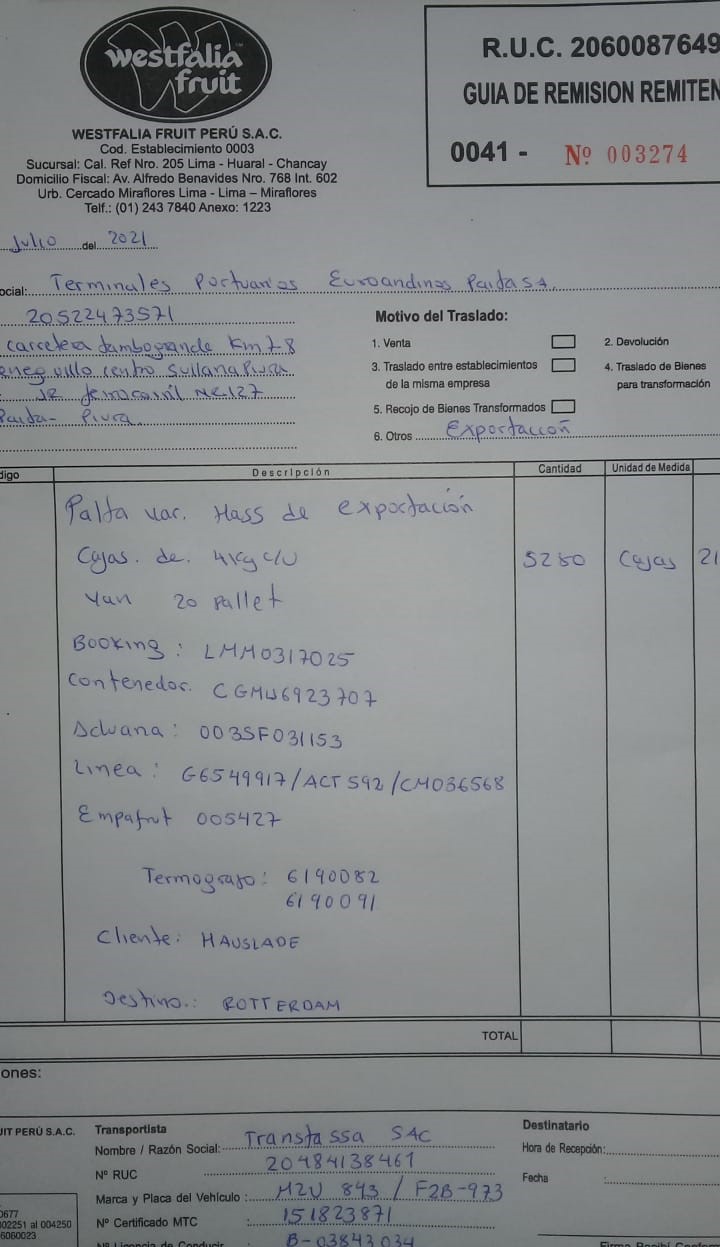 westfalia
fruit
WESTFALIA FRUIT PERÚ S.A.C.
Cod. Establecimiento 0003
Sucursal: Cal. Ref Nro. 205 Lima - Huaral - Chancay
Domicilio Fiscal: Av. Alfredo Benavides Nro. 768 Int. 602
Urb. Cercado Miraflores Lima - Lima – Miraflores
Telf.: (01) 243 7840 Anexo: 1223
R.U.C. 2060087649
GUIA DE REMISION REMITEN
0041 - Nº 003274
Julio del 2021
ocial: Terminales Portuarios Euroandinos Paita SA.
20522473571
carretera tambogrande Km 7.8
centro Sullana Piura
Paita - Piura
Motivo del Traslado:
1. Venta
2. Devolución
3. Traslado entre establecimientos
de la misma empresa
4. Traslado de Bienes
para transformación
5. Recojo de Bienes Transformados
6. Otros Exportación
digo Descripción Cantidad Unidad de Medida
Palta var. Hass de exportación
Cajas. de. 4kg c/u 5280 Cajas 21
Van 20 pallet
Booking: LMM0317025
Contenedor. CGMU6923707
Aduana: 003SF031153
Linea: G6549917/ACT592/CM036568
Empafrut 005427
Termografo: 6190082
6190091
Cliente: HAUSLADE
Destino.: ROTTERDAM
TOTAL
ones:
UIT PERÚ S.A.C.
Transportista
Nombre / Razón Social: Transtassa SAC
Nº RUC 20484138461
Marca y Placa del Vehículo: M2U 843 / F2B-973
Nº Certificado MTC : 151823871
Nº Licencia de Conducir B-03843034
Destinatario
Hora de Recepción:
Fecha :
0677
02251 al 004250
6060023